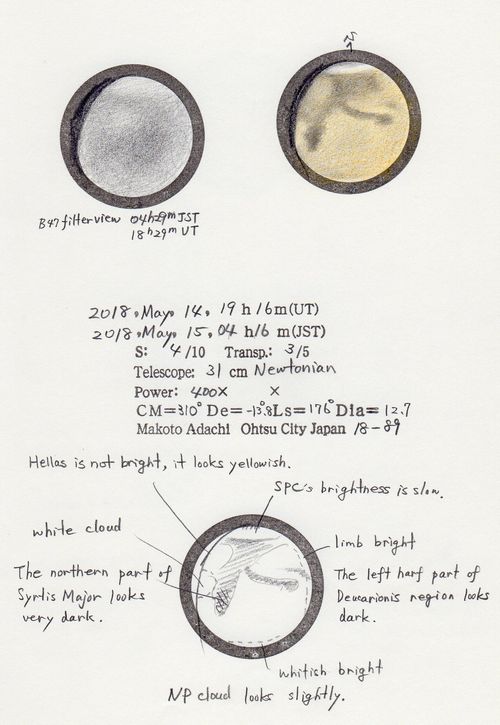 S
B47 filter view 04h29m JST
18h29m UT
2018, May, 14, 19 h 16m(UT)
2018, May, 15, 04 h16 m(JST)
S: 4/10 Transp.: 3/5
Telescope: 31 cm Newtonian
Power: 400X X
CM=310° De=-13.8Ls=176°Dia=12.7
Makoto Adachi Ohtsu City Japan 18-89
Hellas is not bright, it looks yellowish.
SPC's brightness is slow.
white cloud
limb bright
The northern part of
Syrtis Major looks
very dark.
The left harf part of
Deucarionis region looks
dark.
whitish bright
NP cloud looks slightly.